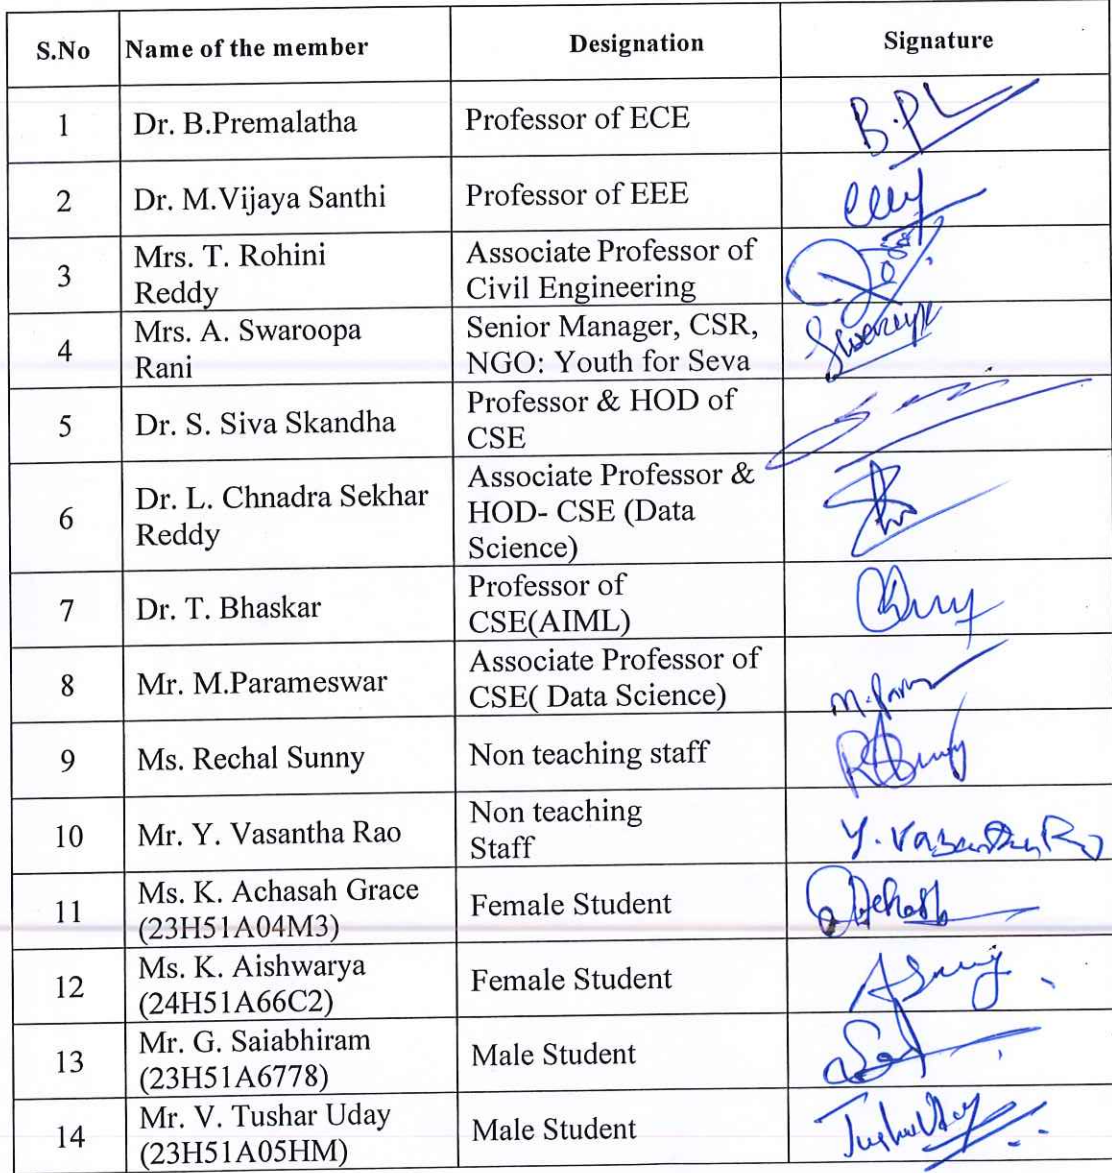 S.No Name of the member Designation Signature
1 Dr. B.Premalatha Professor of ECE B.PL
2 Dr. M.Vijaya Santhi Professor of EEE
3 Mrs. T. Rohini Reddy Associate Professor of Civil Engineering
4 Mrs. A. Swaroopa Rani Senior Manager, CSR, NGO: Youth for Seva
5 Dr. S. Siva Skandha Professor & HOD of CSE
6 Dr. L. Chnadra Sekhar Reddy Associate Professor & HOD- CSE (Data Science)
7 Dr. T. Bhaskar Professor of CSE(AIML)
8 Mr. M.Parameswar Associate Professor of CSE( Data Science)
9 Ms. Rechal Sunny Non teaching staff
10 Mr. Y. Vasantha Rao Non teaching Staff Y. Vasantha Rao
11 Ms. K. Achasah Grace (23H51A04M3) Female Student
12 Ms. K. Aishwarya (24H51A66C2) Female Student
13 Mr. G. Saiabhiram (23H51A6778) Male Student
14 Mr. V. Tushar Uday (23H51A05HM) Male Student